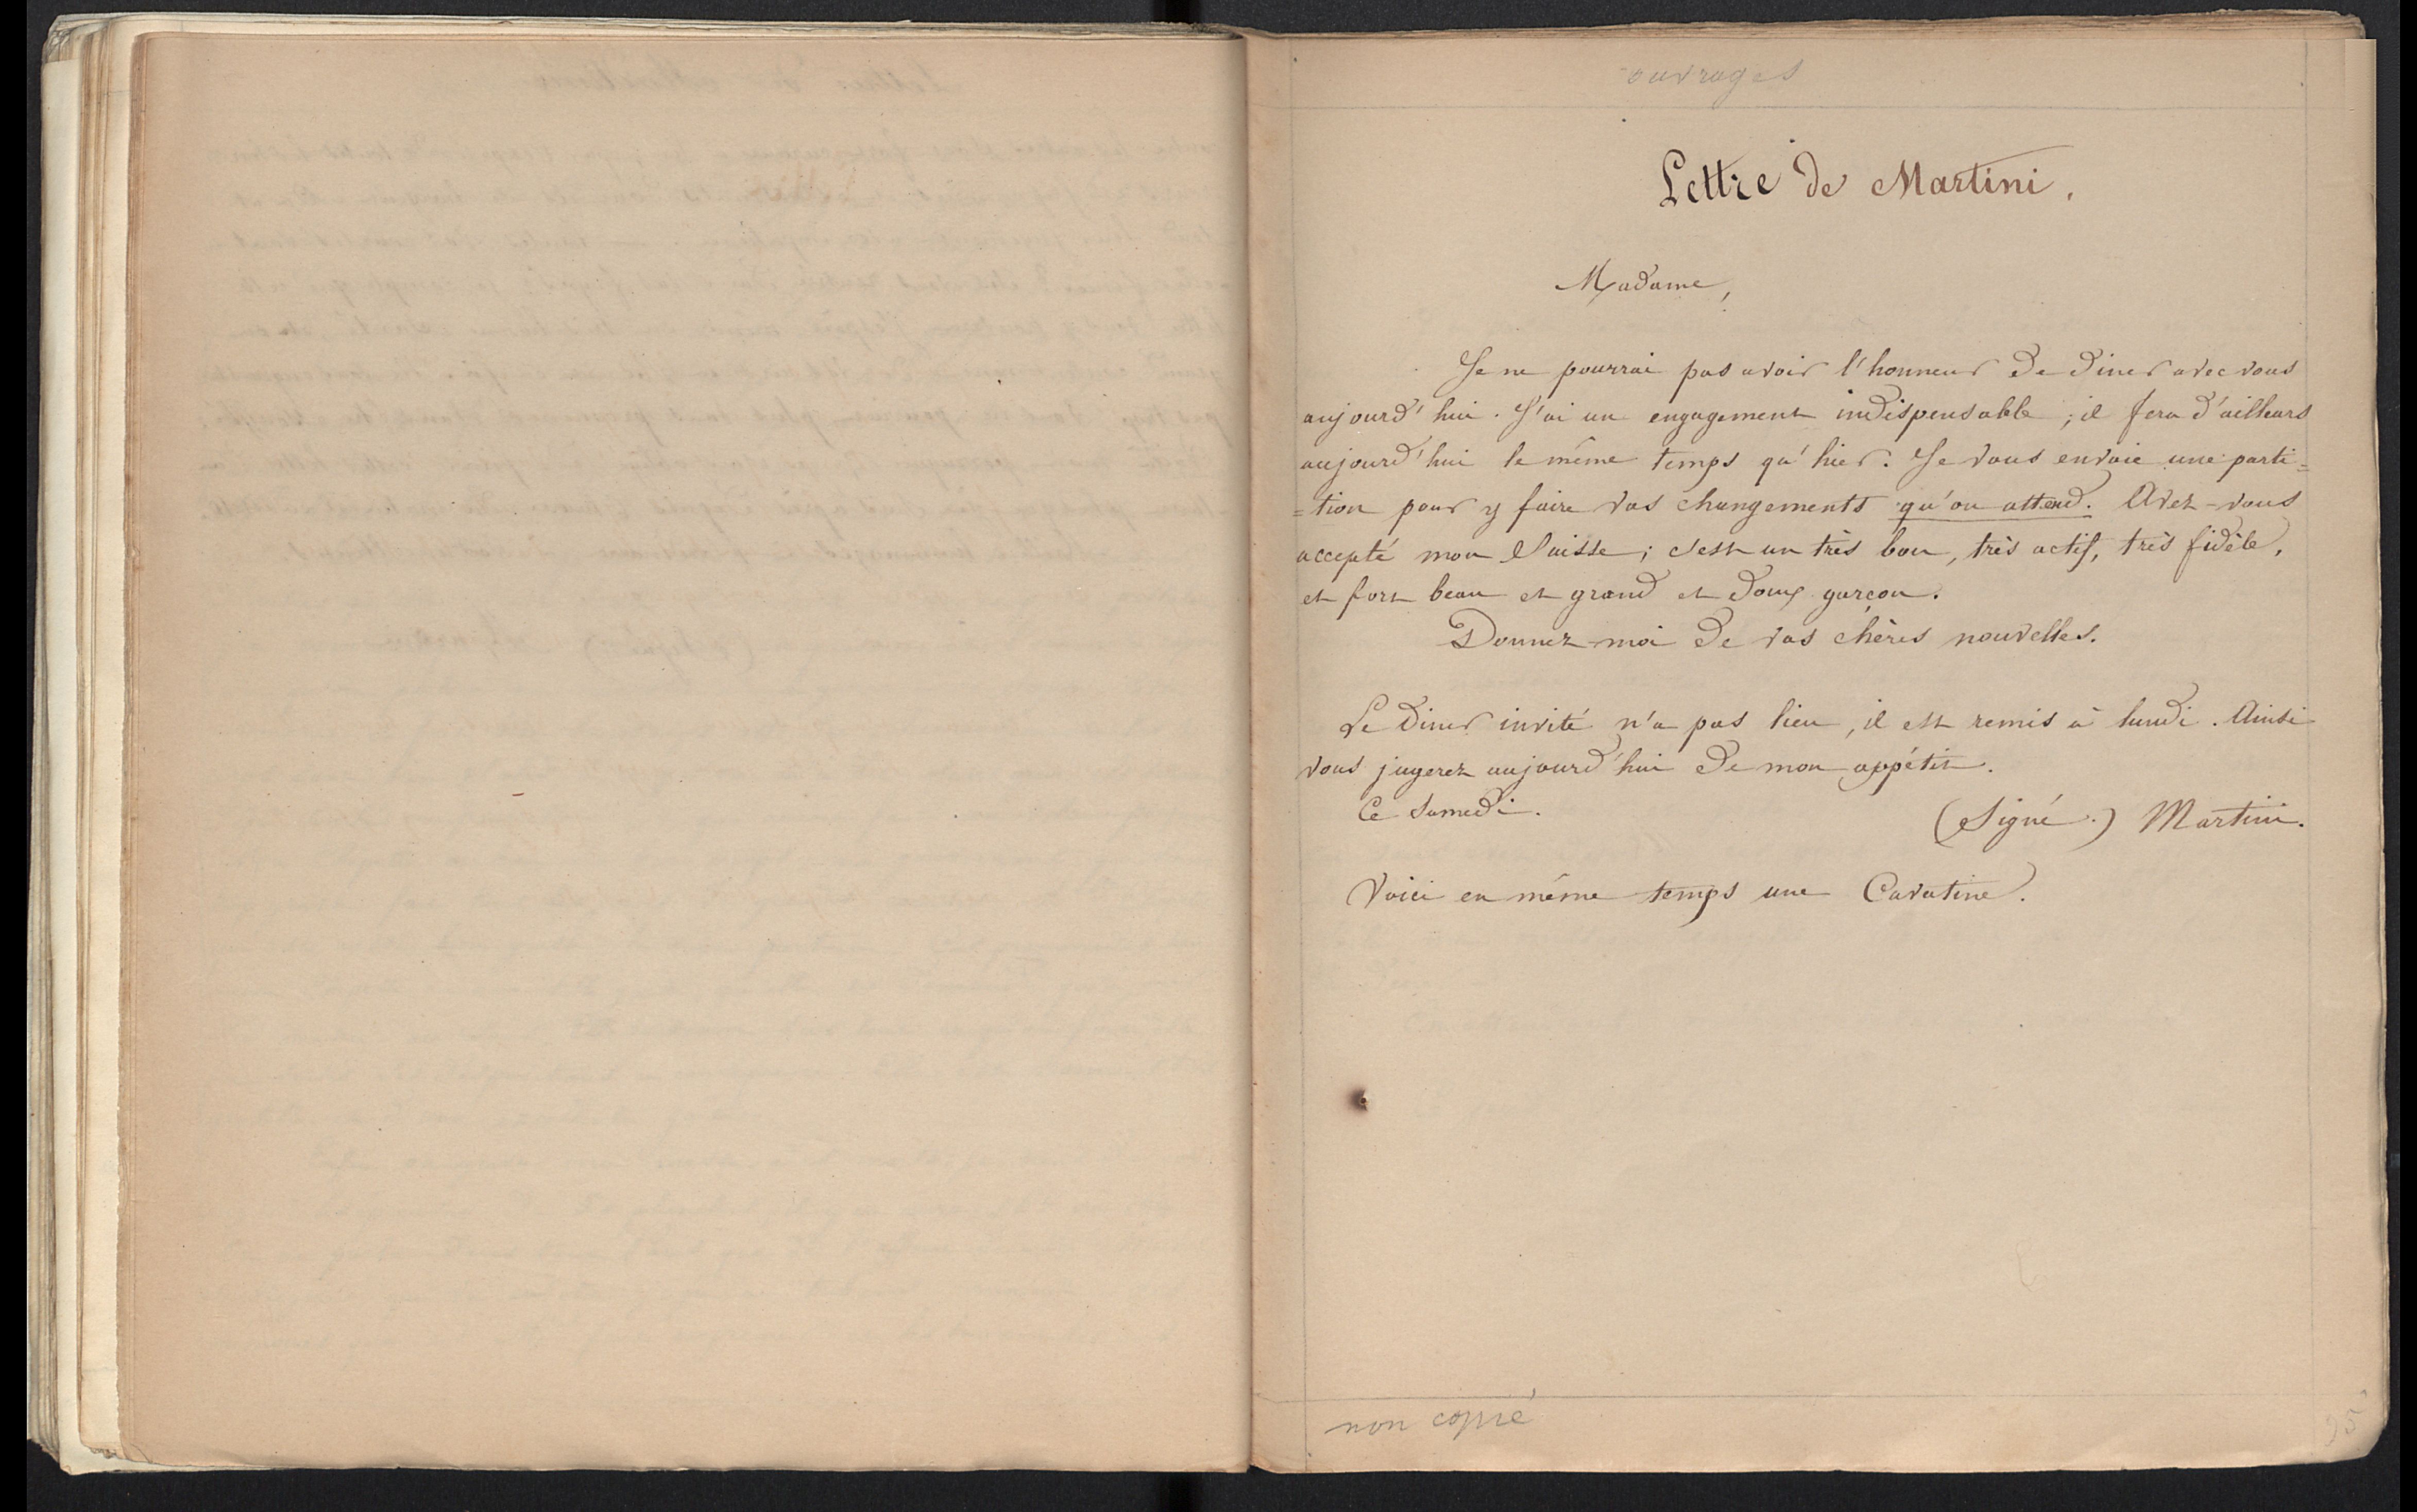 ouvrages
Lettre de Martini.
Madame,
Je ne pourrai pas avoir l'honneur de diner avec vous
aujourd'hui. J'ai un engagement indispensable ; il fera d'ailleurs
aujourd'hui le même temps qu'hier. Je vous envoie une parti=
=tion pour y faire vos changements qu'on attend. Avez-vous
accepté mon Suisse ; c'est un très bon, très actif, très fidèle,
et fort beau et grand et doux garçon.
Donnez-moi de vos chères nouvelles.
Le diner invité n'a pas lieu, il est remis à lundi. Ainsi
vous jugerez aujourd'hui de mon appétit.
Ce samedi.
(Signé.) Martini.
Voici en même temps une Cavatine.
non copié
95